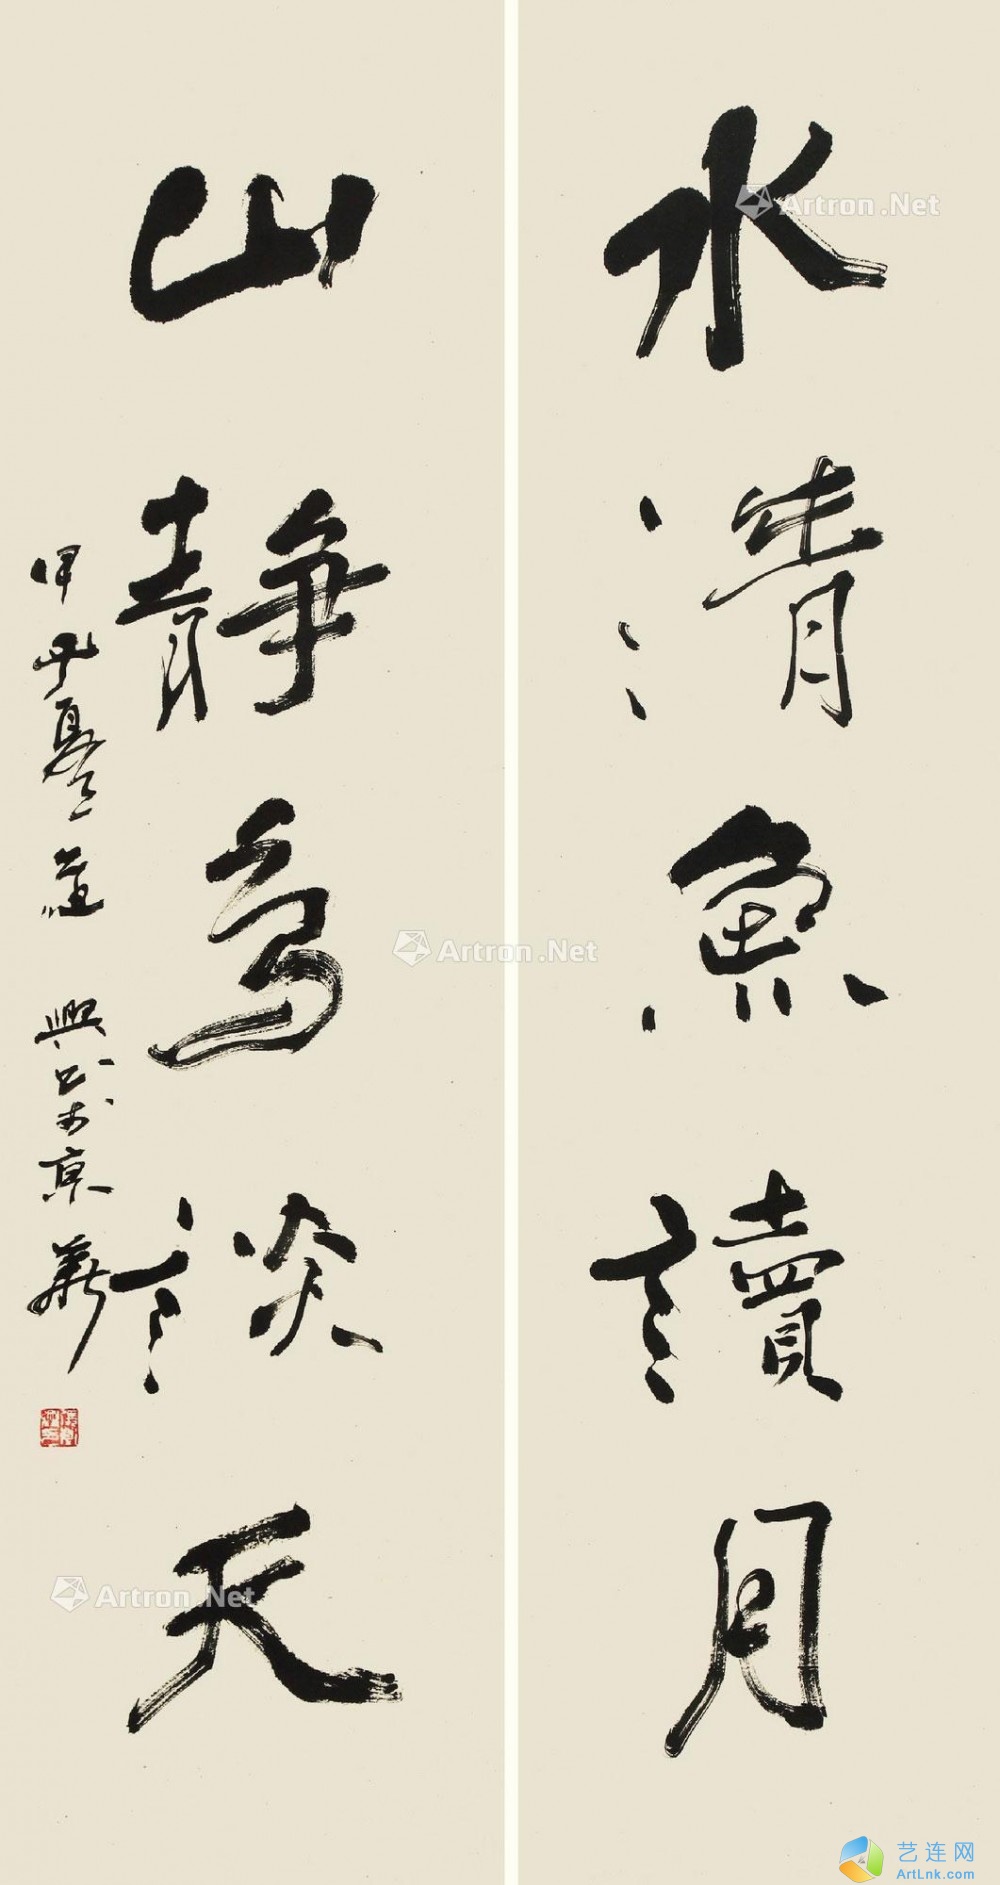 水清魚讀月
山靜鳥談天
甲午夏 於京華
Artron.Net
Artron.Net
Artron.Net
艺连网
ArtLnk.com